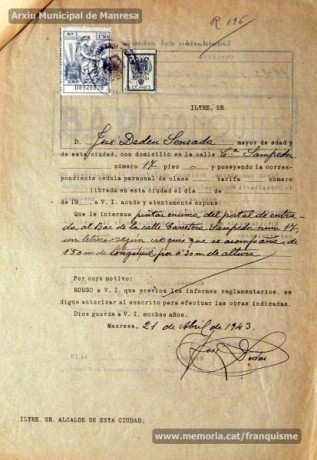 Arxiu Municipal de Manresa
R 196
ILTRE. SR.
D. José Deden Sensada mayor de edad y
de esta ciudad, con domicilio en la calle Cª Sampedor
número 17 piso y poseyendo la corres-
pondiente cédula personal de clase tarifa número
librada en esta ciudad el día de
de 19 a V. I. acude y atentamente expone:
Que le interesa pintar encima del portal de entra-
da al Bar de la calle Carretera Sampedor núm 17,
un letrero según croquis que se acompaña, de
1'50 m de longitud por 0'30 m de altura.
Por cuyo motivo:
RUEGO a V. I. que previos los informes reglamentarios, se
digne autorizar al suscrito para efectuar las obras indicadas.
Dios guarde a V. I. muchos años.
Manresa, 21 de Abril de 1943.
ILTRE. SR. ALCALDE DE ESTA CIUDAD.
www.memoria.cat/franquisme